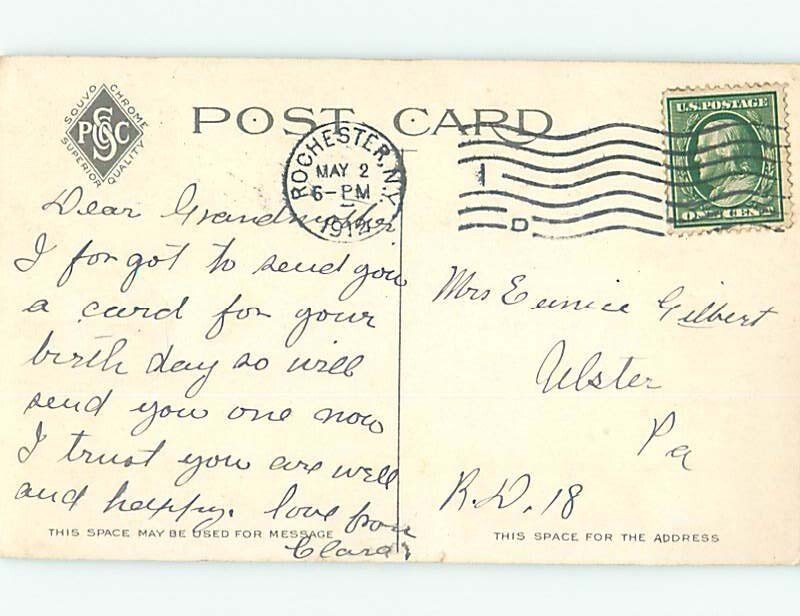 SOUVO CHROME
PGSC
SUPERIOR QUALITY
POST CARD
ROCHESTER, N.Y.
MAY 2
6-PM
D
U.S. POSTAGE
ONE CENT
Dear Grandmother
I forgot to send you
a card for your
birth day so will
send you one now
I trust you are well
and happy. love from
Clara
Mrs Eunice Gilbert
Ulster
Pa
R.D. 18
THIS SPACE MAY BE USED FOR MESSAGE
THIS SPACE FOR THE ADDRESS